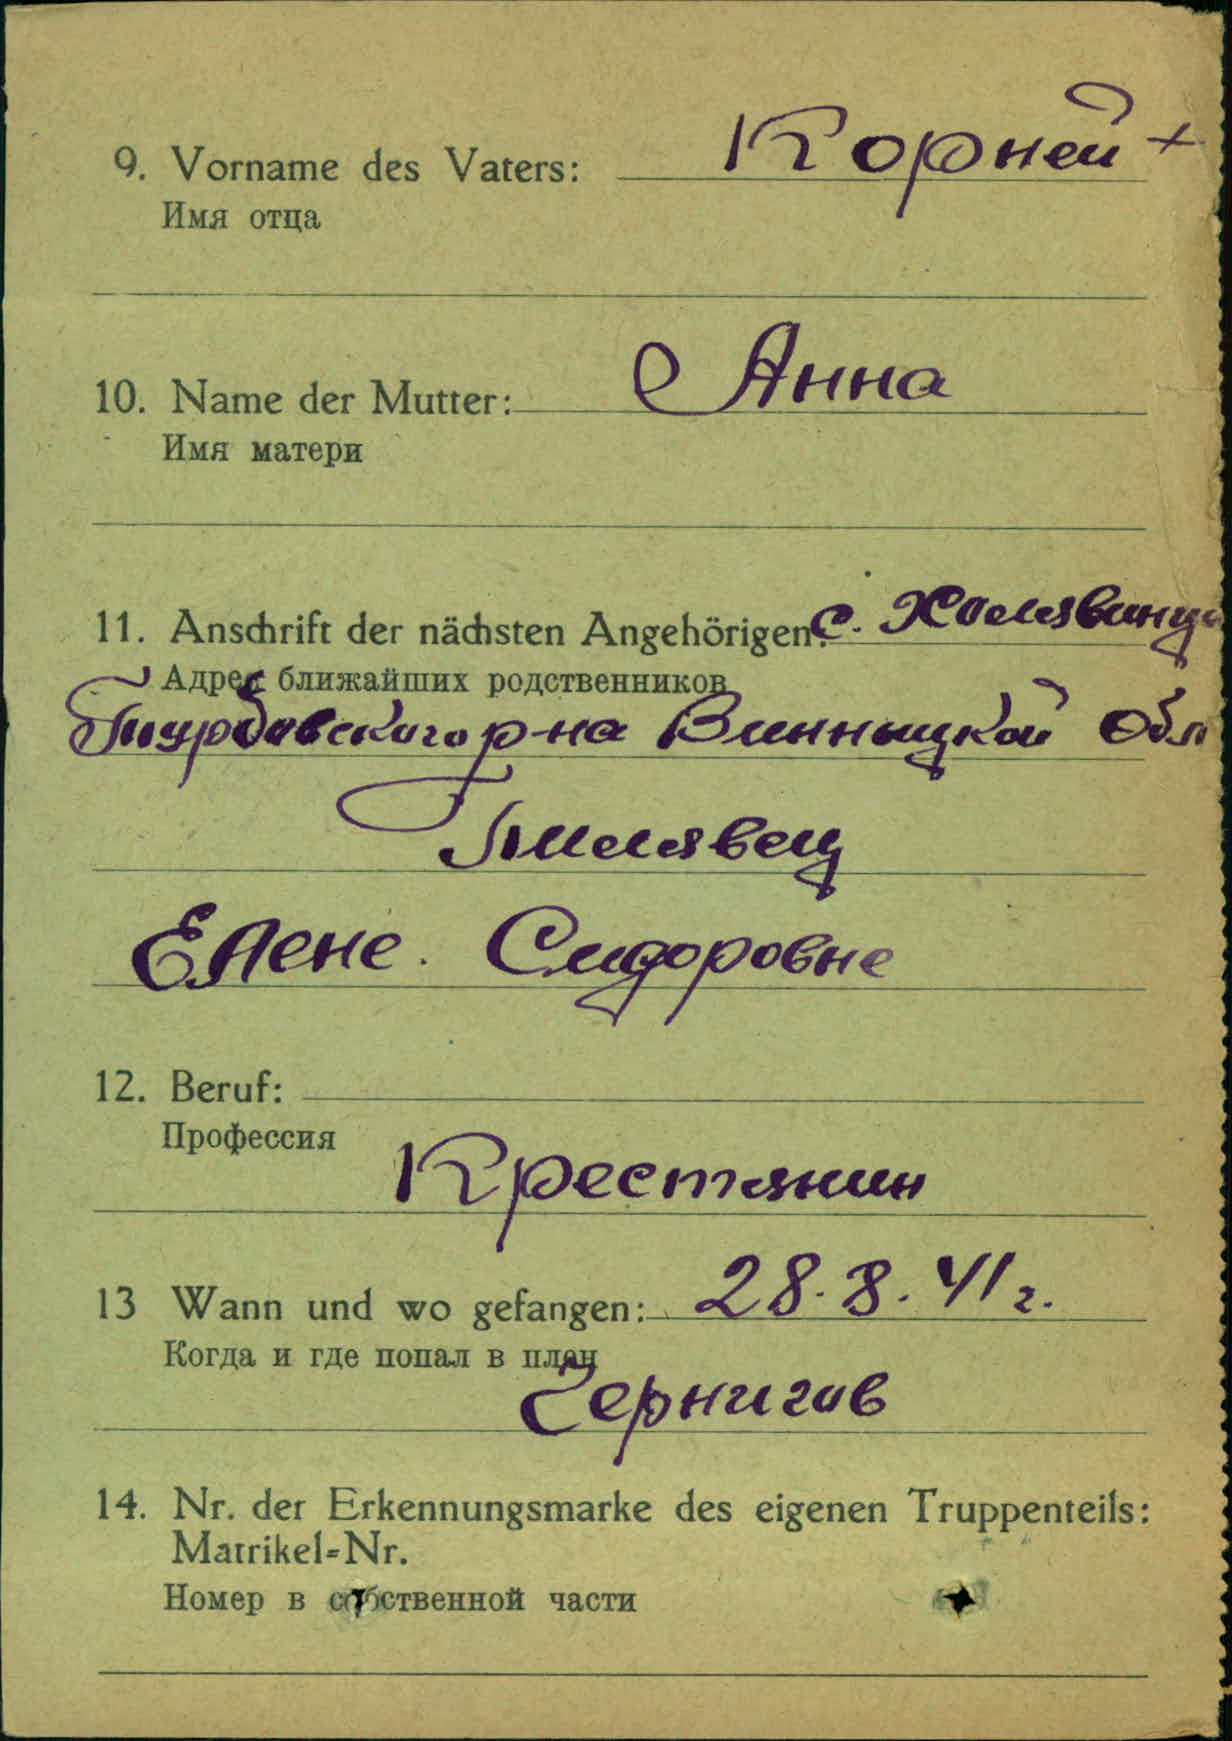 9. Vorname des Vaters: Корней +
Имя отца
10. Name der Mutter: Анна
Имя матери
11. Anschrift der nächsten Angehörigen: с.
Адрес ближайших родственников
Турбовского р-на Винныцкой обл
Пилявец
Елене. Сидоровне
12. Beruf:
Профессия
Крестянин
13 Wann und wo gefangen: 28.8.41г.
Когда и где попал в плэн
Чернигов
14. Nr. der Erkennungsmarke des eigenen Truppenteils:
Matrikel-Nr.
Номер в собственной части